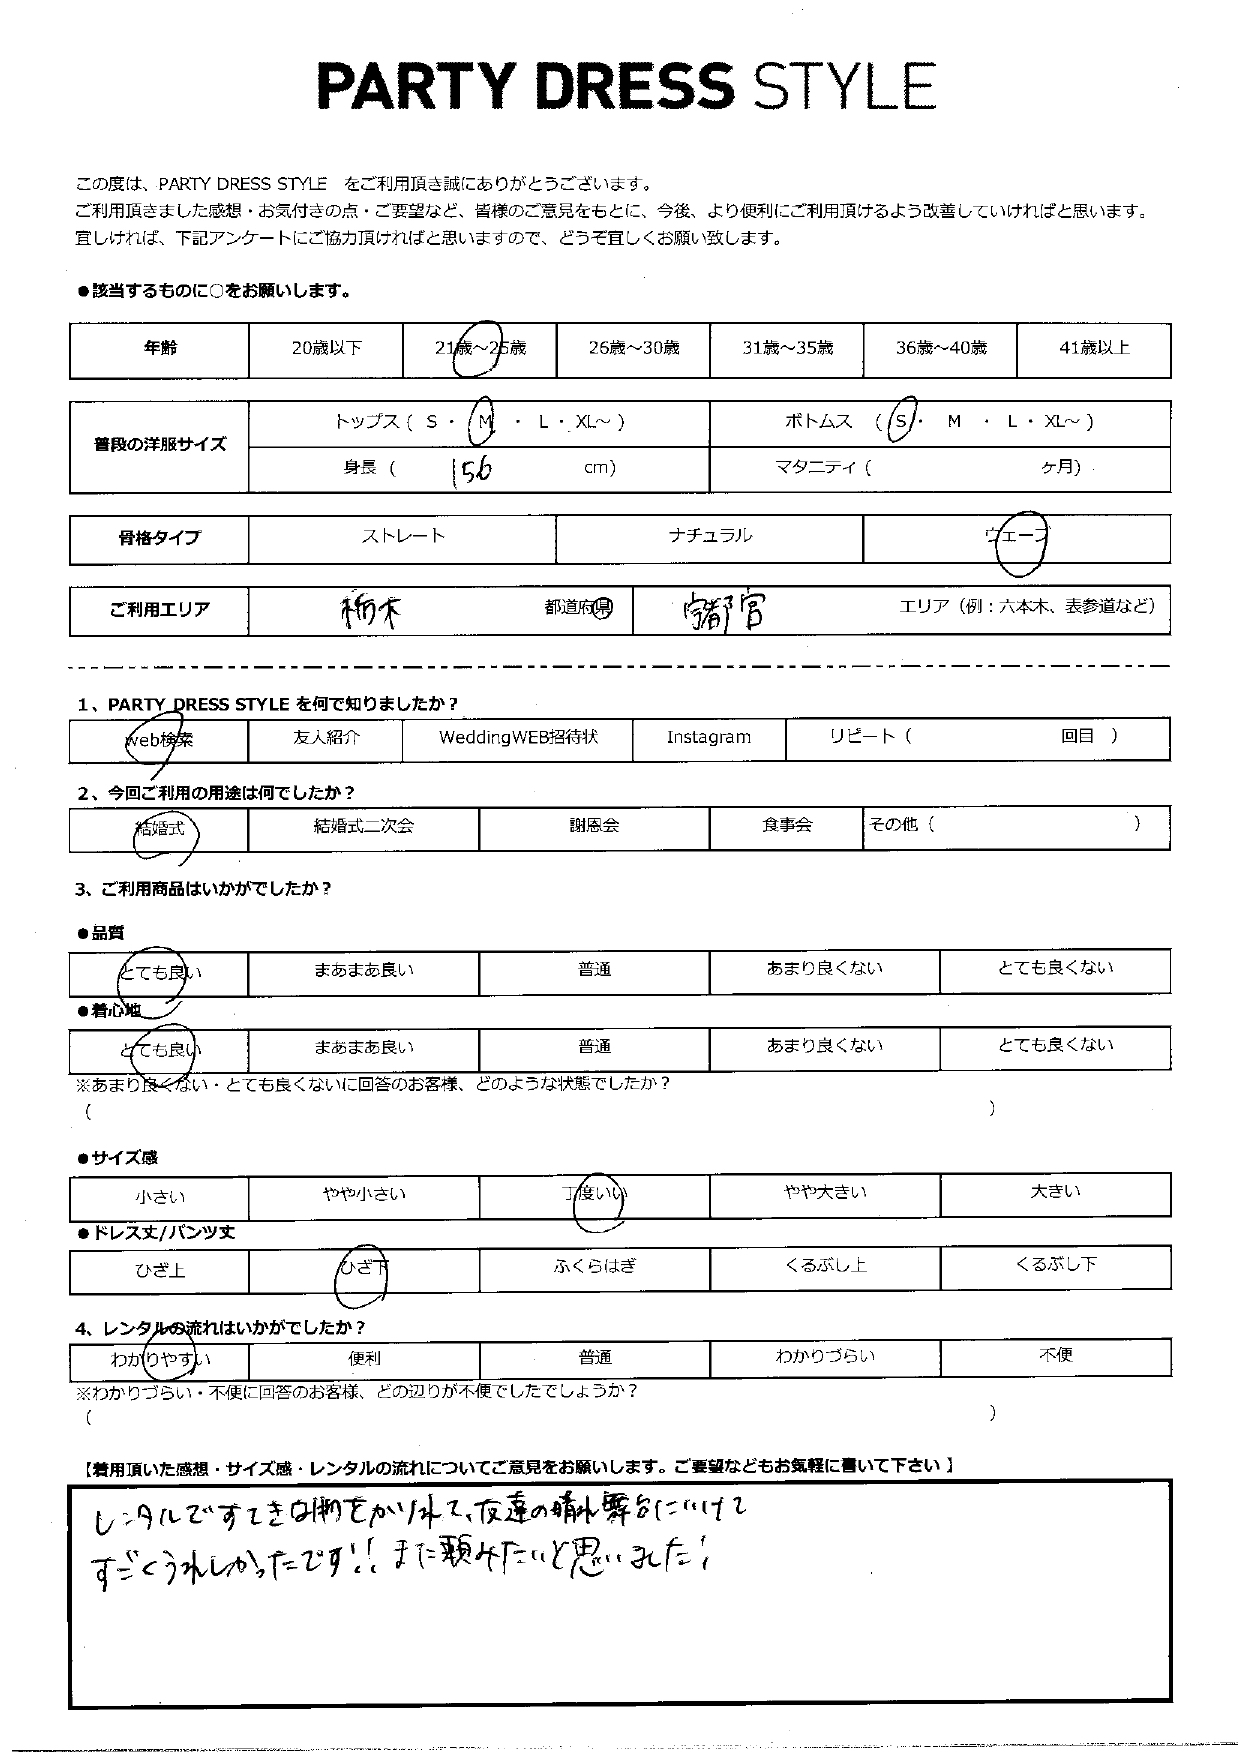 PARTY DRESS STYLE
この度は、PARTY DRESS STYLE をご利用頂き誠にありがとうございます。
ご利用頂きました感想・お気付きの点・ご要望など、皆様のご意見をもとに、今後、より便利にご利用頂けるよう改善していければと思います。
宜しければ、下記アンケートにご協力頂ければと思いますので、どうぞ宜しくお願い致します。
●該当するものに○をお願いします。
年齢 20歳以下 21歳～25歳 26歳～30歳 31歳～35歳 36歳～40歳 41歳以上
普段の洋服サイズ トップス ( S ・ M ・ L ・ XL～ ) ボトムス ( S ・ M ・ L ・ XL～ )
身長 ( 156 cm) マタニティ ( ケ月)
骨格タイプ ストレート ナチュラル ウェーブ
ご利用エリア 栃木 都道府県 宇都宮 エリア（例：六本木、表参道など）
1、PARTY DRESS STYLE を何で知りましたか？
web検索 友人紹介 WeddingWEB招待状 Instagram リピート ( 回目 )
2、今回ご利用の用途は何でしたか？
結婚式 結婚式二次会 謝恩会 食事会 その他 ( )
3、ご利用商品はいかがでしたか？
●品質
とても良い まあまあ良い 普通 あまり良くない とても良くない
●着心地
とても良い まあまあ良い 普通 あまり良くない とても良くない
※あまり良くない・とても良くないに回答のお客様、どのような状態でしたか？
( )
●サイズ感
小さい やや小さい 丁度いい やや大きい 大きい
●ドレス丈/パンツ丈
ひざ上 ひざ下 ふくらはぎ くるぶし上 くるぶし下
4、レンタルの流れはいかがでしたか？
わかりやすい 便利 普通 わかりづらい 不便
※わかりづらい・不便に回答のお客様、どの辺りが不便でしたでしょうか？
( )
【着用頂いた感想・サイズ感・レンタルの流れについてご意見をお願いします。ご要望などもお気軽に書いて下さい】
レンタルですてきな をかりれて、友達の晴れ舞台にいけて
すごくうれしかったです!! また頼みたいと思いました!